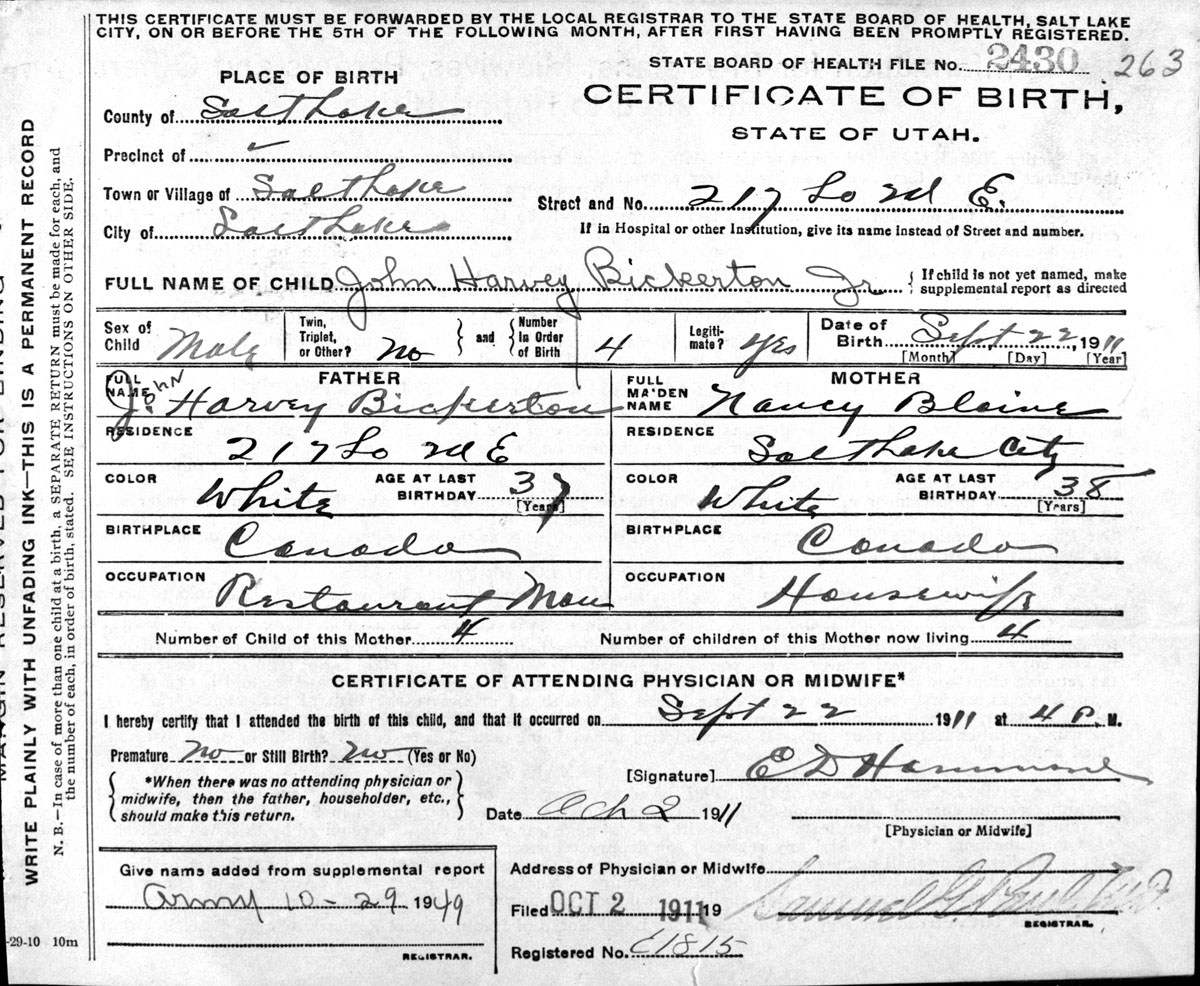 THIS CERTIFICATE MUST BE FORWARDED BY THE LOCAL REGISTRAR TO THE STATE BOARD OF HEALTH, SALT LAKE
CITY, ON OR BEFORE THE 5TH OF THE FOLLOWING MONTH, AFTER FIRST HAVING BEEN PROMPTLY REGISTERED.
STATE BOARD OF HEALTH FILE No. 2430 263
PLACE OF BIRTH
CERTIFICATE OF BIRTH,
STATE OF UTAH.
County of Salt Lake
Precinct of
Town or Village of Salt Lake
Street and No. 217 So 2d E.
City of Salt Lake
If in Hospital or other Institution, give its name instead of Street and number.
FULL NAME OF CHILD John Harvey Bickerton Jr. { If child is not yet named, make
supplemental report as directed
Sex of Child Male
Twin, Triplet, or Other? No
and
Number In Order of Birth 4
Legiti-mate? Yes
Date of Birth Sept 22, 1911
[Month] [Day] [Year]
FATHER
FULL NAME John Harvey Bickerton
RESIDENCE
217 So 2d E
COLOR White
AGE AT LAST BIRTHDAY 37
[Years]
BIRTHPLACE
Canada
OCCUPATION
Restaurant Man
MOTHER
FULL MAIDEN NAME Nancy Blaine
RESIDENCE
Salt Lake City
COLOR White
AGE AT LAST BIRTHDAY 38
[Years]
BIRTHPLACE
Canada
OCCUPATION
Housewife
Number of Child of this Mother 4
Number of children of this Mother now living 4
CERTIFICATE OF ATTENDING PHYSICIAN OR MIDWIFE*
I hereby certify that I attended the birth of this child, and that it occurred on Sept 22 1911 at 4 P. M.
Premature? No or Still Birth? No (Yes or No)
*When there was no attending physician or
midwife, then the father, householder, etc.,
should make this return.
[Signature] E D Hammond
Date Oct 2 1911
[Physician or Midwife]
Give name added from supplemental report
Army 10-29 1949
REGISTRAR.
Address of Physician or Midwife
Filed OCT 2 1911 19 Samuel G. Paul M.D.
REGISTRAR.
Registered No. C1815
-29-10 10m
WRITE PLAINLY WITH UNFADING INK—THIS IS A PERMANENT RECORD
N. B.—In case of more than one child at a birth, a SEPARATE RETURN must be made for each, and
the number of each, in order of birth, stated. SEE INSTRUCTIONS ON OTHER SIDE.